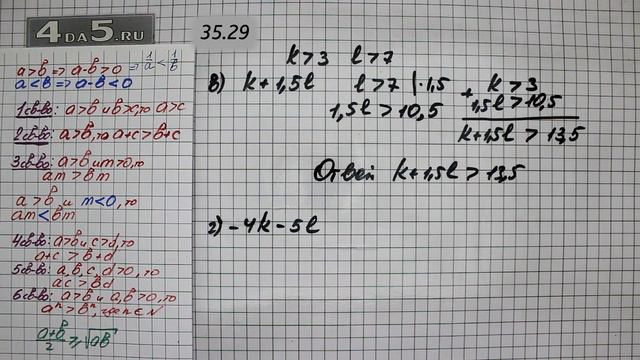 4DA5.RU
a>b => a-b>0 => 1/a < 1/b
a<b => a-b<0
1св-во: a>b и b>x, то a>c
2св-во: a>b, то a+c>b+c
3св-во: a>b и m>0, то
am>bm
a>b, и m<0, то
am<bm
4св-во: a>b и c>d, то
a+c>b+d
5св-во: a,b,c,d>0, то
ac>bd
6св-во: a>b и a,b>0, то
aⁿ>bⁿ, где n∈N
(a+b)/2 ≥ √ab
35.29
k>3 l>7
в) k+1,5l l>7 |·1,5
1,5l>10,5
+ k>3
1,5l>10,5
k+1,5l > 13,5
Ответ k+1,5l>13,5
г) -4k-5l